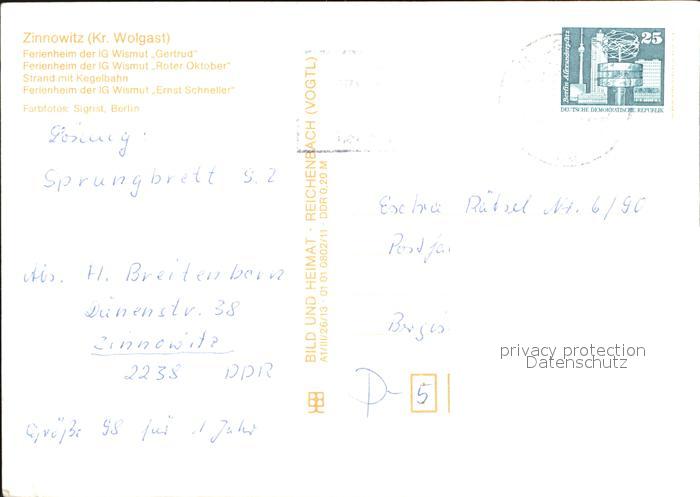 Zinnowitz (Kr. Wolgast)
Ferienheim der IG Wismut „Gertrud"
Ferienheim der IG Wismut „Roter Oktober"
Strand mit Kegelbahn
Ferienheim der IG Wismut „Ernst Schneller"
Farbfotos: Sigrist, Berlin
Lösung:
Sprungbrett S. 2
Abs. H. Breitenborn
Dünenstr. 38
Zinnowitz
2238 DDR
Größe 98 für 1 Jahr
BILD UND HEIMAT · REICHENBACH (VOGTL)
A1/III/26/13 · 01 01 0802/11 · DDR 0,20 M
Berlin, Alexanderplatz
25
DEUTSCHE DEMOKRATISCHE REPUBLIK
Extra Rätsel Nr. 6/90
Postfa
Bergis
D-5
privacy protection
Datenschutz